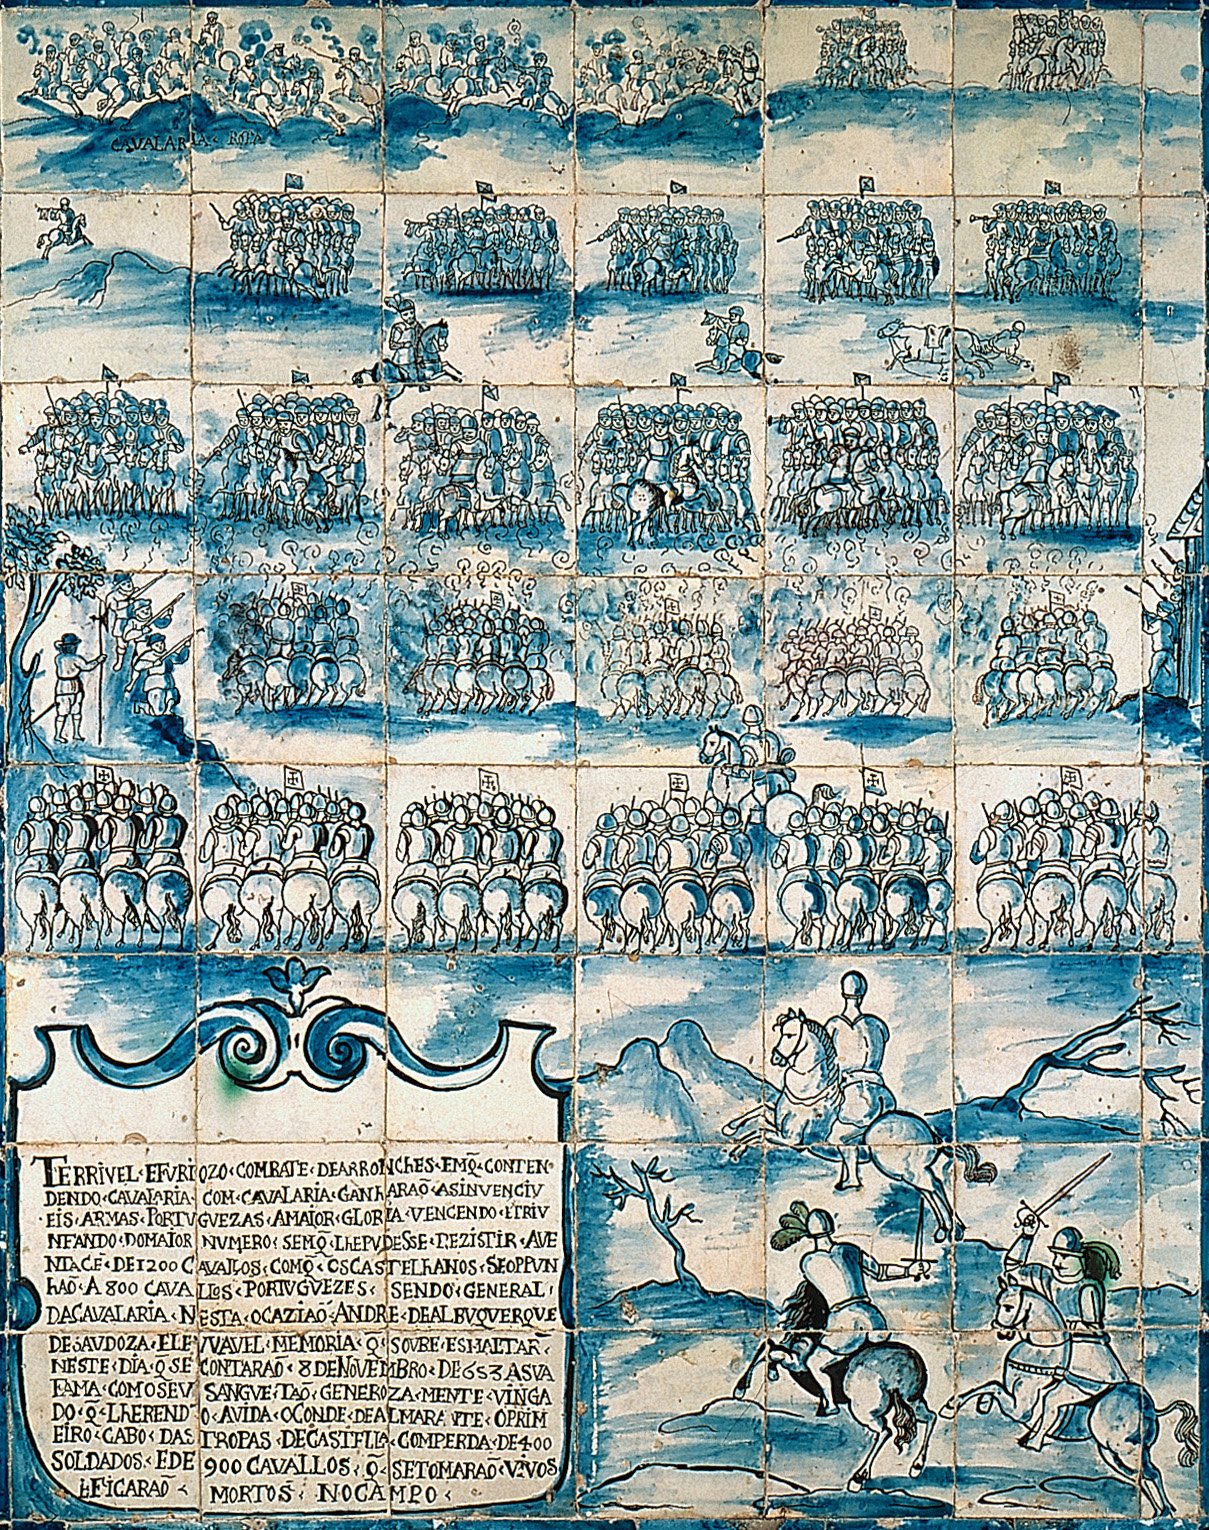 CAVALARIA ROTA
TERRIVEL·EFURIOZO·COMBATE·DEARRONCHES·EMQ̃·CONTEN
DENDO·CAVALARIA·COM·CAVALARIA·GANHARAÕ·ASINVENCIV
EIS·ARMAS·PORTVGUEZAS·AMAIOR·GLORIA·VENCENDO·ETRIV
NFANDO·DOMAIOR·NUMERO·SEMQ̃·LHEPUDESSE·REZISTIR·AVE
NTACẼ·DE1200 CAVALLOS·COMQ̃·OSCASTELHANOS·SEOPPVN
HAÕ·A 800 CAVALLOS·PORTVGUEZES·SENDO·GENERAL·
DACAVALARIA·NESTA·OCAZIAÕ·ANDRE·DEALBUQUERQUE
DESAVDOZA·ELEVVAVEL·MEMORIA·Q̃·SOUBE·ESMALTAR
NESTE·DIA·Q̃SE CONTARAÕ·8 DENOVEMBRO·DE653 ASVA
FAMA·COMOSEV SANGVE·TAÕ·GENEROZA·MENTE·VINGA
DO·Q̃·LHERENDO·AVIDA·OCONDE·DEALMARANTE·OPRIM
EIRO·CABO·DAS TROPAS·DECASTELLA·COMPERDA·DE400
SOLDADOS·EDE 900 CAVALLOS·Q̃·SETOMARAÕ·VIVOS
EFICARAÕ· MORTOS· NOCAMPO·